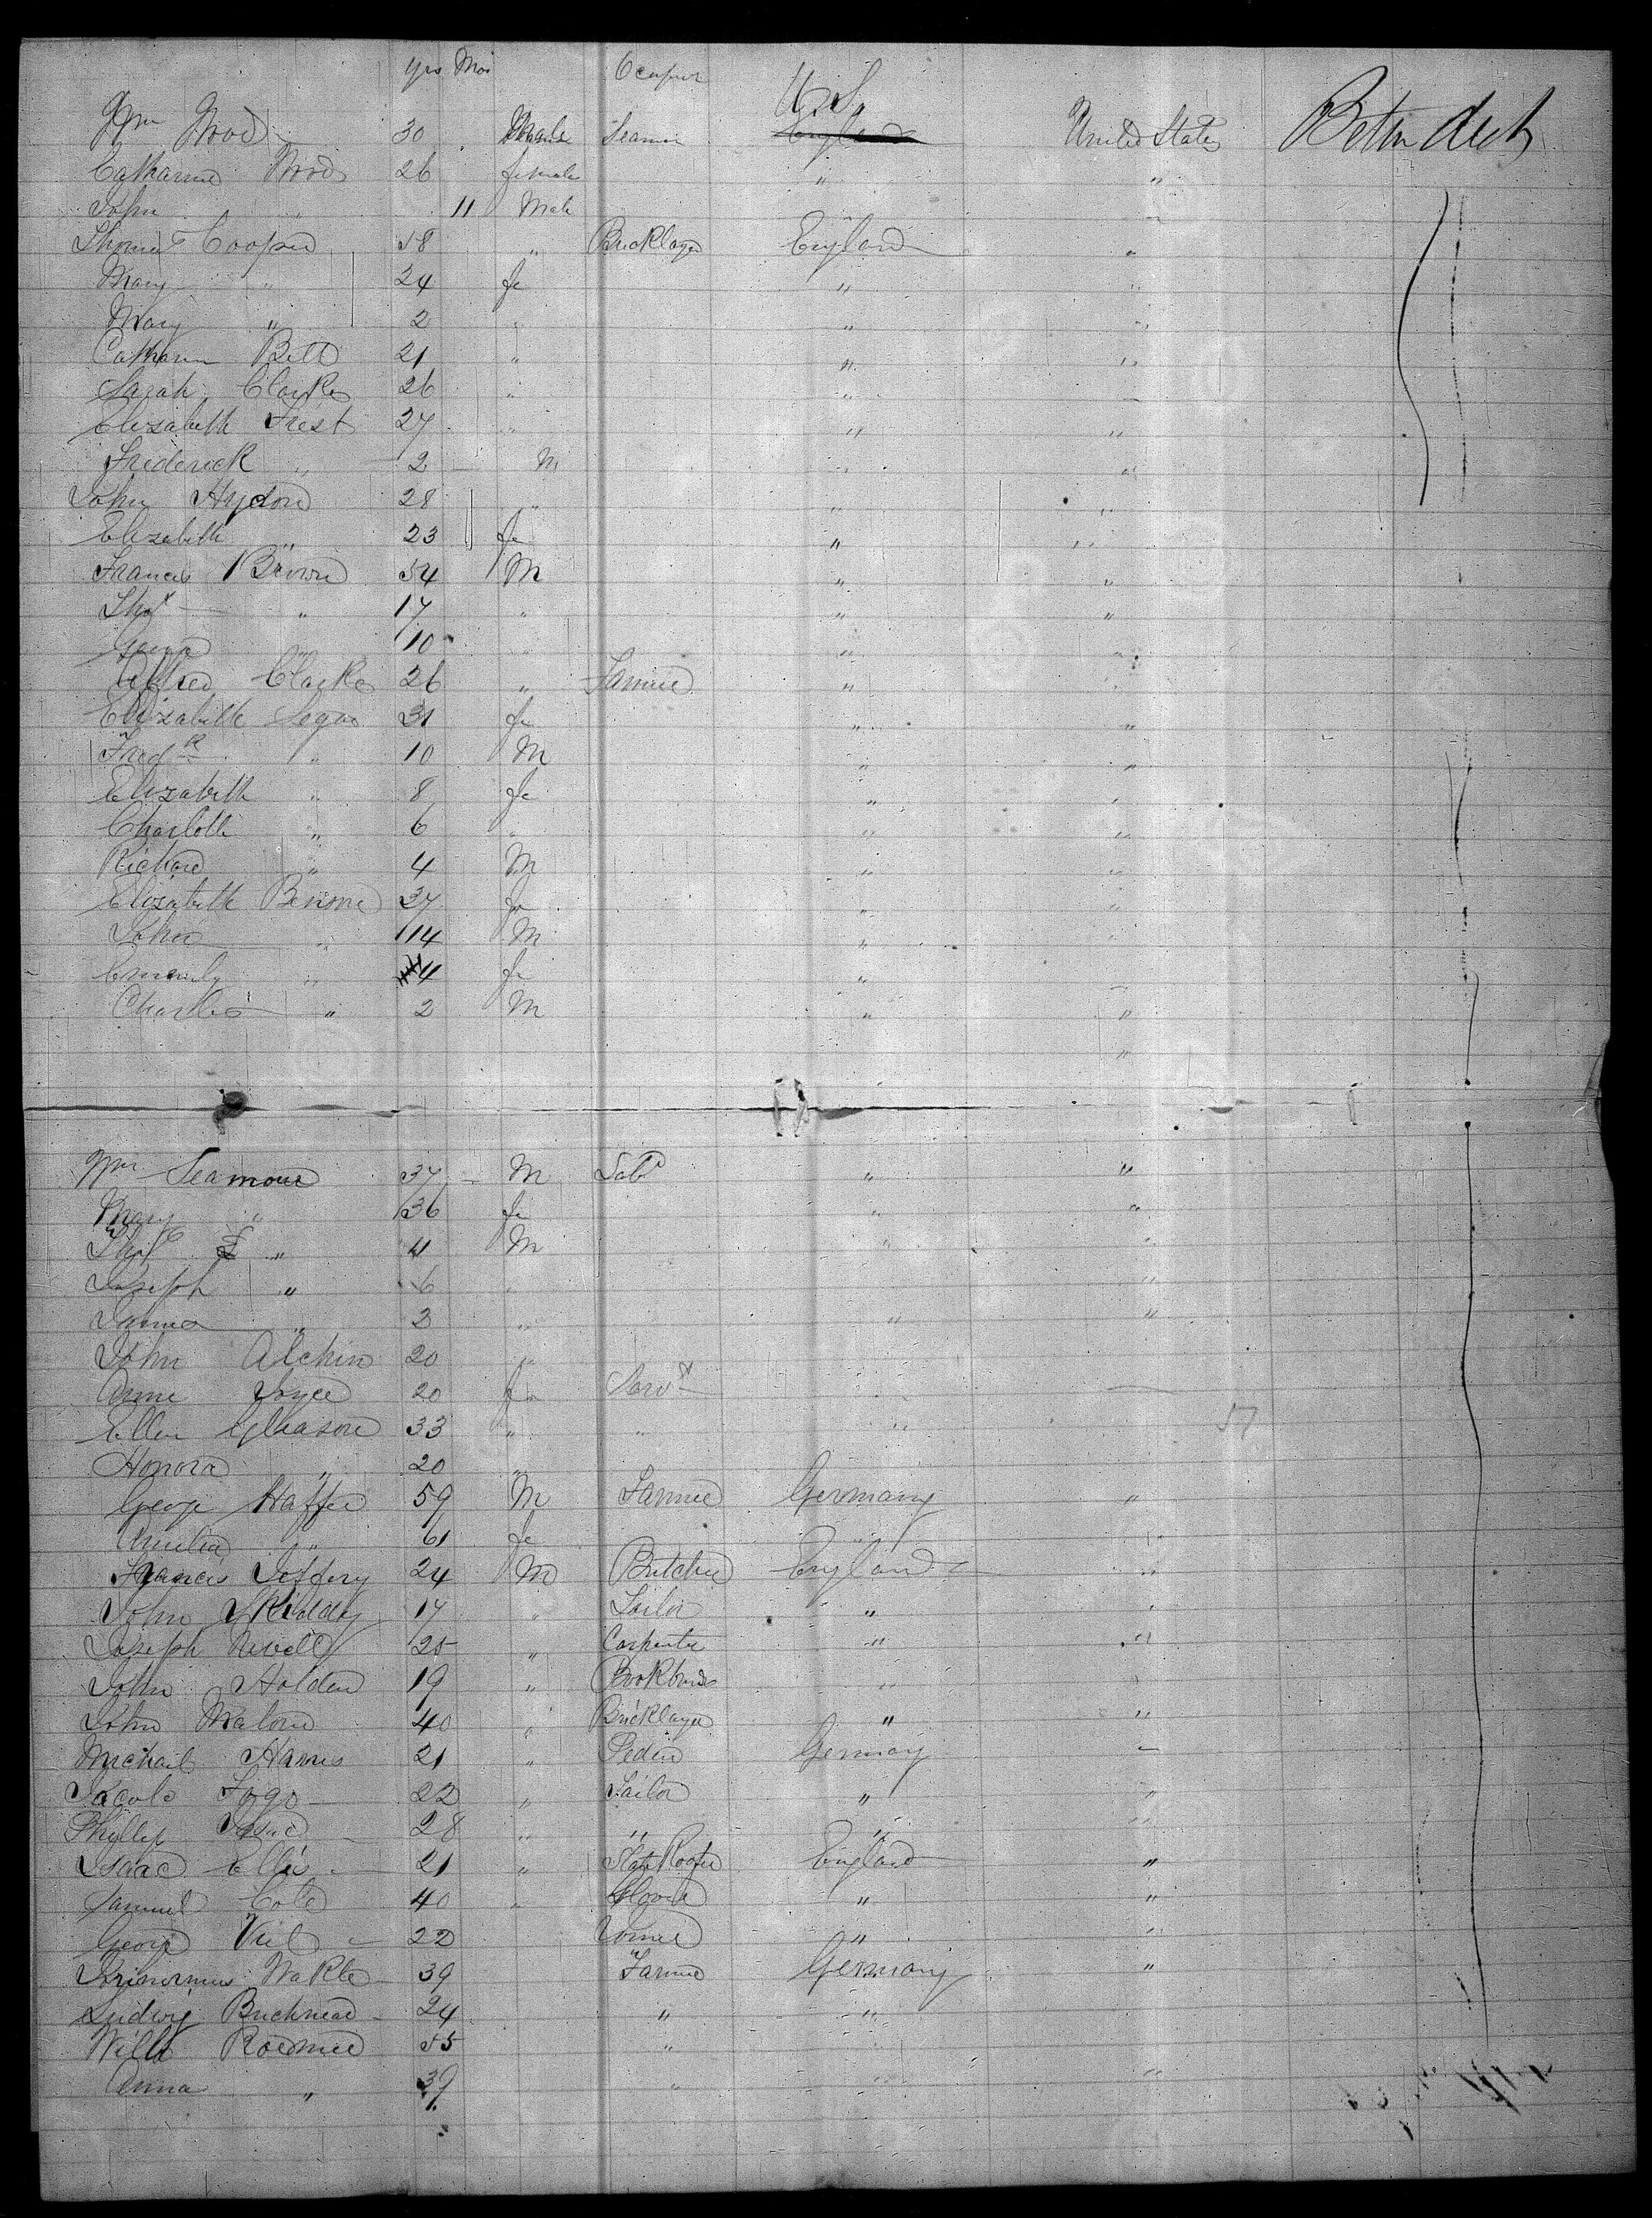 yrs Mos Ocupur
U.S.
Wm Wood 30 Male Seaman England United States Betw dech
Catharine Wood 26 female " "
John " 11 Male "
Thomas Cooper 58 " Bricklayer England "
Mary " 24 fe " "
Mary " 2 " " "
Catharin Bell 21 " " "
Sarah Clarke 26 " " "
Elizabeth Frest 27 " " "
Frederick " 2 M " "
John Hydon 28 " " "
Elizabeth " 23 fe " "
Francis Brown 54 M " "
Thos " 17 " " "
10 " " "
Alfred Clarke 26 " Farmer " "
Elizabeth Segar 31 fe " "
Fredk " 10 M " "
Elizabeth " 8 fe " "
Charlotte " 6 " " "
Richard " 4 M " "
Elizabeth 37 fe " "
John " 14 M " "
Emealy " 4 fe " "
Charles " 2 M " "
"
Wm Seamour 37 M Labr " "
Mary " 36 fe " "
Thos " 11 M " "
Joseph " 6 " "
James " 3 " " "
John Alchin 20 "
Anne Joyce 20 fe Servt
Ellen Gleason 33 " " " 57
Honora " 20 "
George Haffer 59 M Farmer Germany "
Amelia " 61 fe " "
Francis Jeffery 24 M Butcher England "
John Skidday 17 " Tailor " "
Joseph Nevell 25 " Carpenter " "
John Holden 19 " Bookbinder " "
John Malone 40 " Bricklayer " "
Michail Harris 21 " Pedler Germany "
Jacob Fogo 22 " Tailor " "
Phyllip Isaac 28 " " " "
Isaac Ellis 21 " Slate Roofer England "
Samuel Cole 40 " Glover " "
George Viel 22 "  "
39 Farmer Germany "
Ludwig 24 " "
Willm Roemer 55 "
Anna " 39 " " "